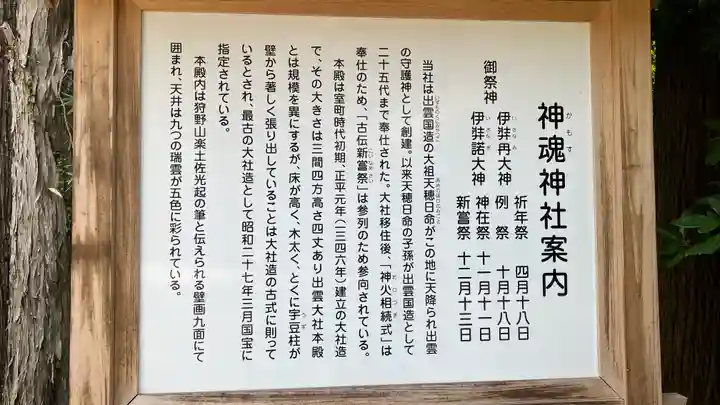 神魂神社案内
かもす
御祭神
伊弉冉大神
いざなみ
伊弉諾大神
いざなぎ
祈年祭 四月十八日
例祭 十月十八日
神在祭 十一月十一日
新嘗祭 十二月十三日
当社は出雲国造の大祖天穂日命がこの地に天降られ出雲
の守護神として創建。以来天穂日命の子孫が出雲国造として
二十五代まで奉仕された。大社移住後、「神火相続式」は
奉仕のため、「古伝新嘗祭」は参列のため参向されている。
本殿は室町時代初期、正平元年(一三四六年)建立の大社造
で、その大きさは三間四方高さ四丈あり出雲大社本殿
とは規模を異にするが、床が高く、木太く、とくに宇豆柱が
うず
壁から著しく張り出していることは大社造の古式に則って
いるとされ、最古の大社造として昭和二十七年三月国宝に
指定されている。
本殿内は狩野山楽土佐光起の筆と伝えられる壁画九面にて
囲まれ、天井は九つの瑞雲が五色に彩られている。